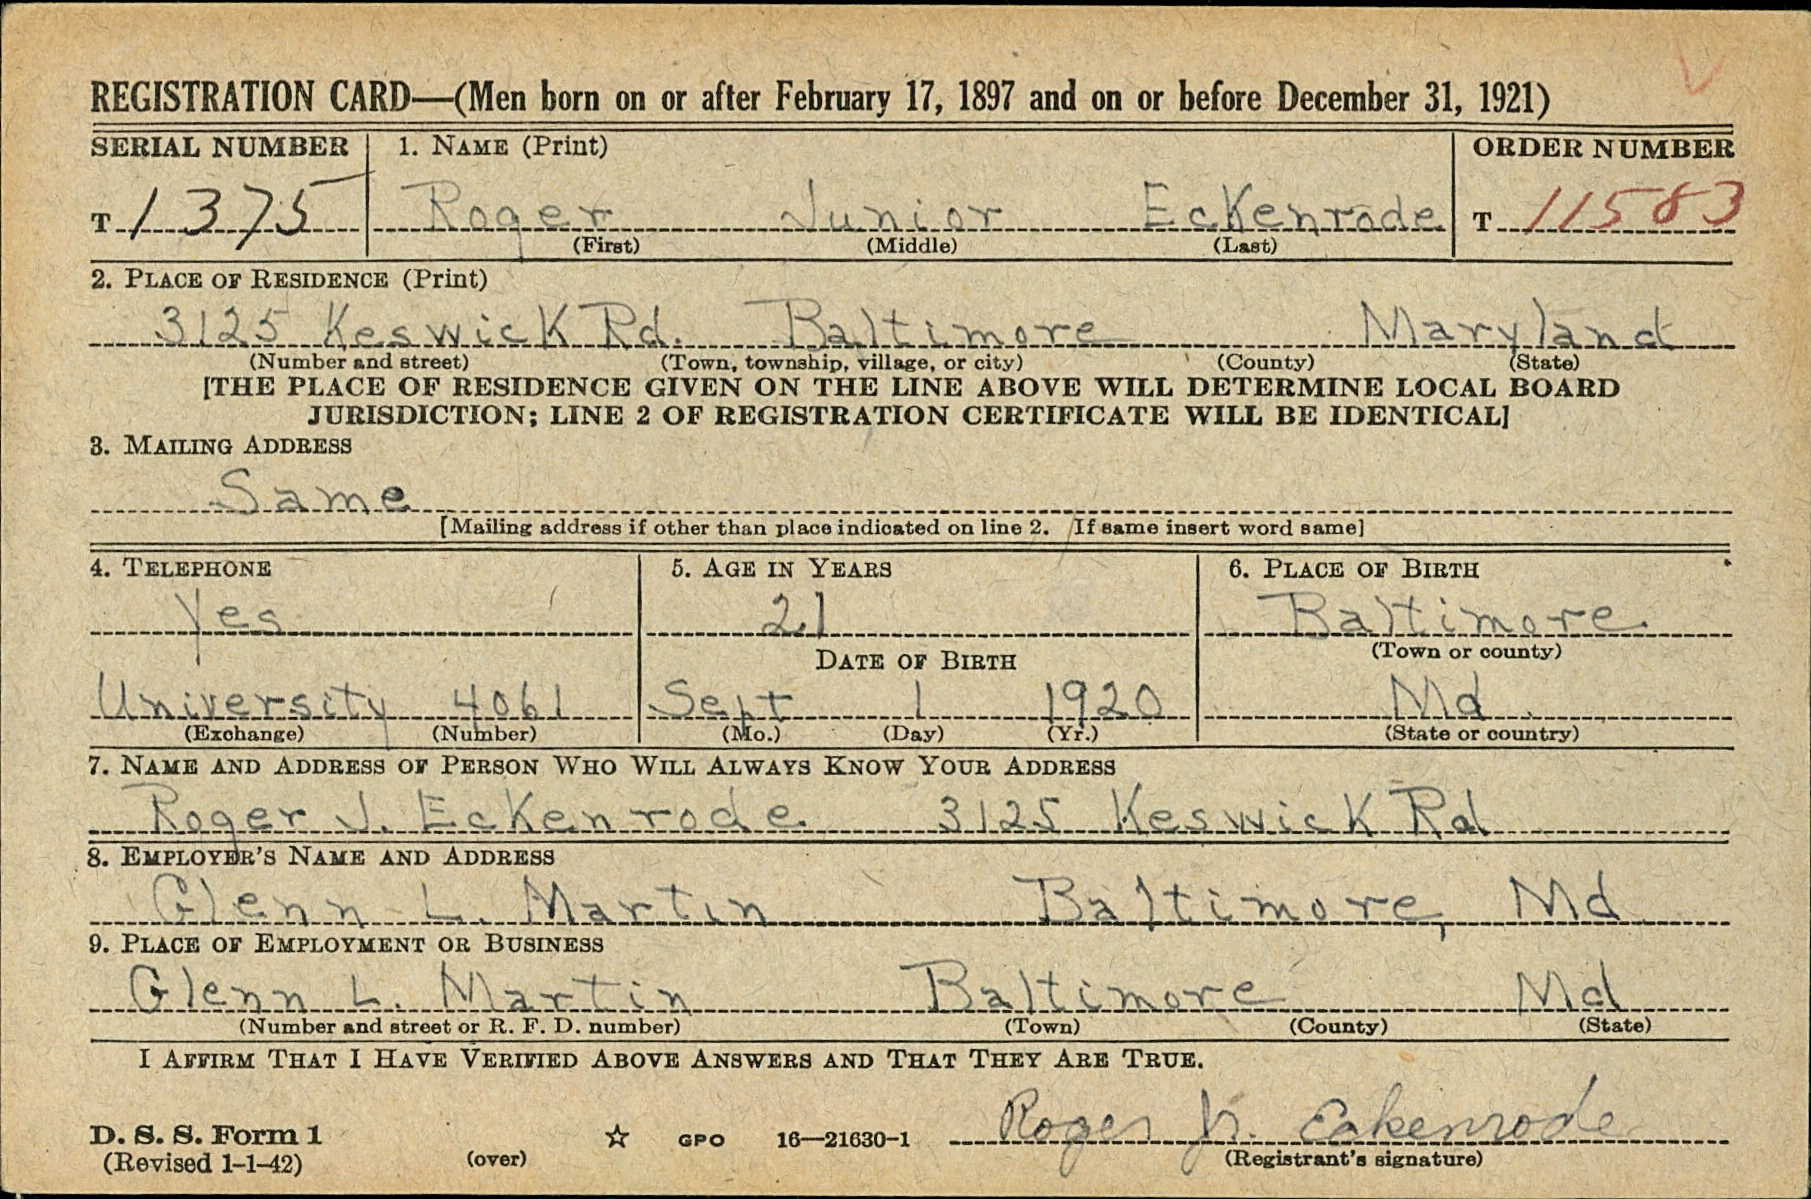 REGISTRATION CARD—(Men born on or after February 17, 1897 and on or before December 31, 1921)
SERIAL NUMBER 1. NAME (Print) ORDER NUMBER
T 1375 Roger Junior Eckenrode T 11583
(First) (Middle) (Last)
2. PLACE OF RESIDENCE (Print)
3125 Keswick Rd. Baltimore Maryland
(Number and street) (Town, township, village, or city) (County) (State)
[THE PLACE OF RESIDENCE GIVEN ON THE LINE ABOVE WILL DETERMINE LOCAL BOARD
JURISDICTION; LINE 2 OF REGISTRATION CERTIFICATE WILL BE IDENTICAL]
3. MAILING ADDRESS
Same
[Mailing address if other than place indicated on line 2. If same insert word same]
4. TELEPHONE 5. AGE IN YEARS 6. PLACE OF BIRTH
Yes 21 Baltimore
(Town or county)
DATE OF BIRTH
University 4061 Sept 1 1920 Md.
(Exchange) (Number) (Mo.) (Day) (Yr.) (State or country)
7. NAME AND ADDRESS OF PERSON WHO WILL ALWAYS KNOW YOUR ADDRESS
Roger J. Eckenrode 3125 Keswick Rd
8. EMPLOYER'S NAME AND ADDRESS
Glenn L. Martin Baltimore, Md
9. PLACE OF EMPLOYMENT OR BUSINESS
Glenn L. Martin Baltimore Md
(Number and street or R. F. D. number) (Town) (County) (State)
I AFFIRM THAT I HAVE VERIFIED ABOVE ANSWERS AND THAT THEY ARE TRUE.
Roger Jr. Eckenrode
D. S. S. Form 1 ☆ GPO 16—21630-1
(Revised 1-1-42) (over) (Registrant's signature)